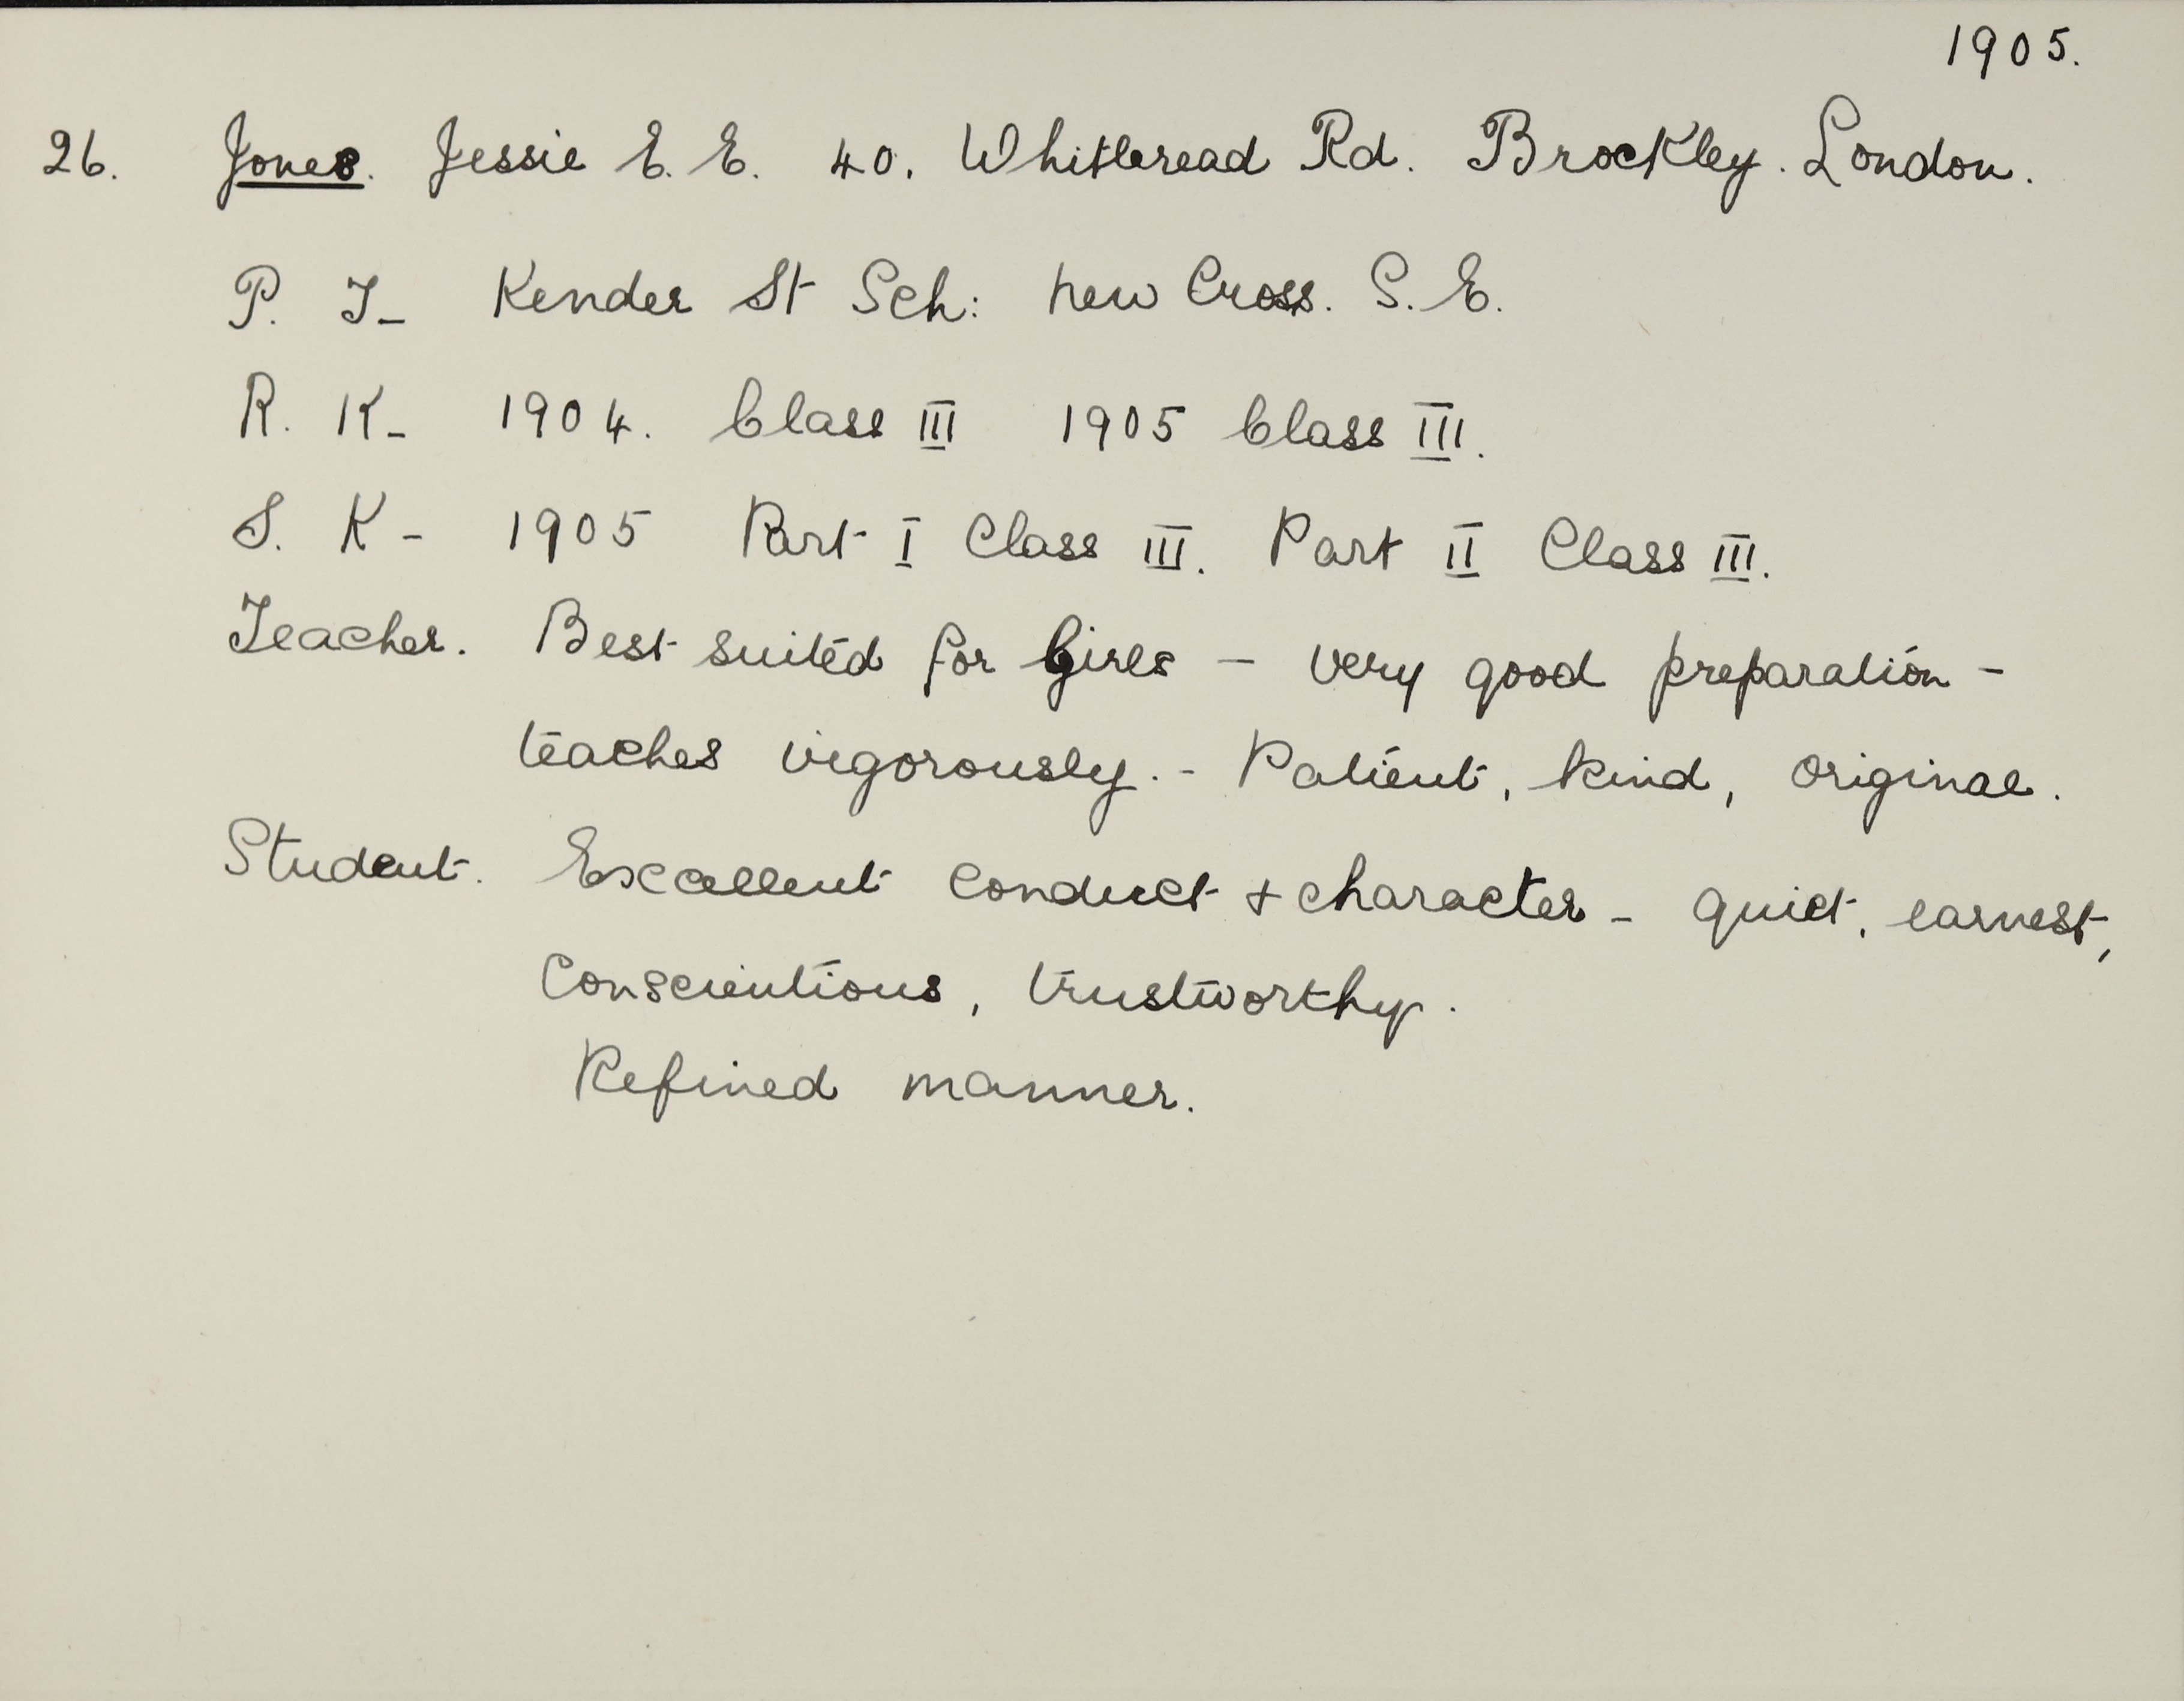 1905.
26. Jones. Jessie E. E. 40. Whitbread Rd. Brockley. London.
P. T- Kender St Sch: New Cross. S. E.
R. K- 1904. Class III 1905 Class III.
S. K- 1905 Part I Class III. Part II Class III.
Teacher. Best suited for Girls - very good preparation -
teaches vigorously. - Patient, kind, original.
Student. Excellent conduct & character - quiet, earnest,
conscientious, trustworthy.
Refined manner.